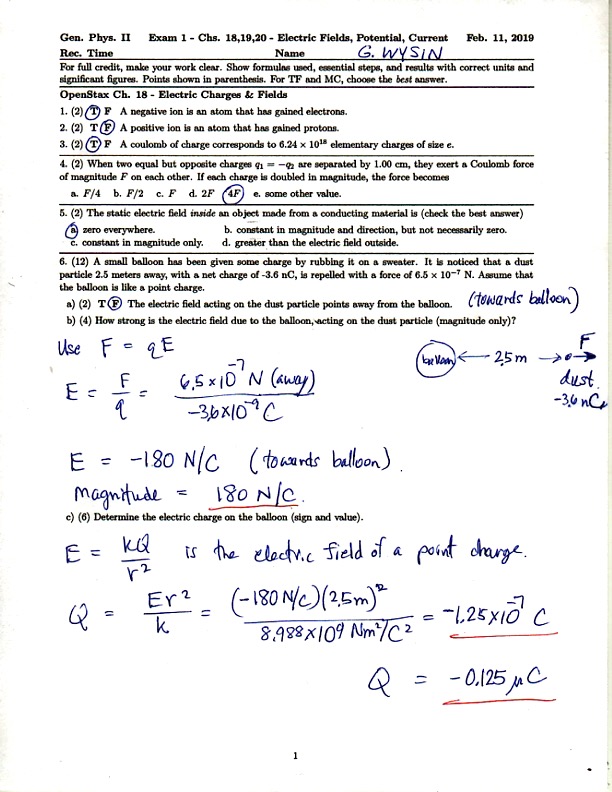 Gen. Phys. II Exam 1 - Chs. 18,19,20 - Electric Fields, Potential, Current Feb. 11, 2019
Rec. Time Name G. WYSIN
For full credit, make your work clear. Show formulas used, essential steps, and results with correct units and
significant figures. Points shown in parenthesis. For TF and MC, choose the best answer.
OpenStax Ch. 18 - Electric Charges & Fields
1. (2) T F A negative ion is an atom that has gained electrons.
2. (2) T F A positive ion is an atom that has gained protons.
3. (2) T F A coulomb of charge corresponds to 6.24 × 10¹⁸ elementary charges of size e.
4. (2) When two equal but opposite charges q₁ = −q₂ are separated by 1.00 cm, they exert a Coulomb force
of magnitude F on each other. If each charge is doubled in magnitude, the force becomes
a. F/4 b. F/2 c. F d. 2F 4F e. some other value.
5. (2) The static electric field inside an object made from a conducting material is (check the best answer)
a. zero everywhere. b. constant in magnitude and direction, but not necessarily zero.
c. constant in magnitude only. d. greater than the electric field outside.
6. (12) A small balloon has been given some charge by rubbing it on a sweater. It is noticed that a dust
particle 2.5 meters away, with a net charge of -3.6 nC, is repelled with a force of 6.5 × 10⁻⁷ N. Assume that
the balloon is like a point charge.
a) (2) T F The electric field acting on the dust particle points away from the balloon. (towards balloon)
b) (4) How strong is the electric field due to the balloon, acting on the dust particle (magnitude only)?
Use F = qE
balloon ← 2.5m → F
dust
-3.6 nC
E = F/q = 6.5×10⁻⁷ N (away) / -3.6×10⁻⁹ C
E = -180 N/C (towards balloon).
Magnitude = 180 N/C.
c) (6) Determine the electric charge on the balloon (sign and value).
E = kQ/r² is the electric field of a point charge.
Q = Er²/k = (-180 N/C)(2.5m)² / 8.988×10⁹ Nm²/C² = -1.25×10⁻⁷ C
Q = -0.125 μC
1